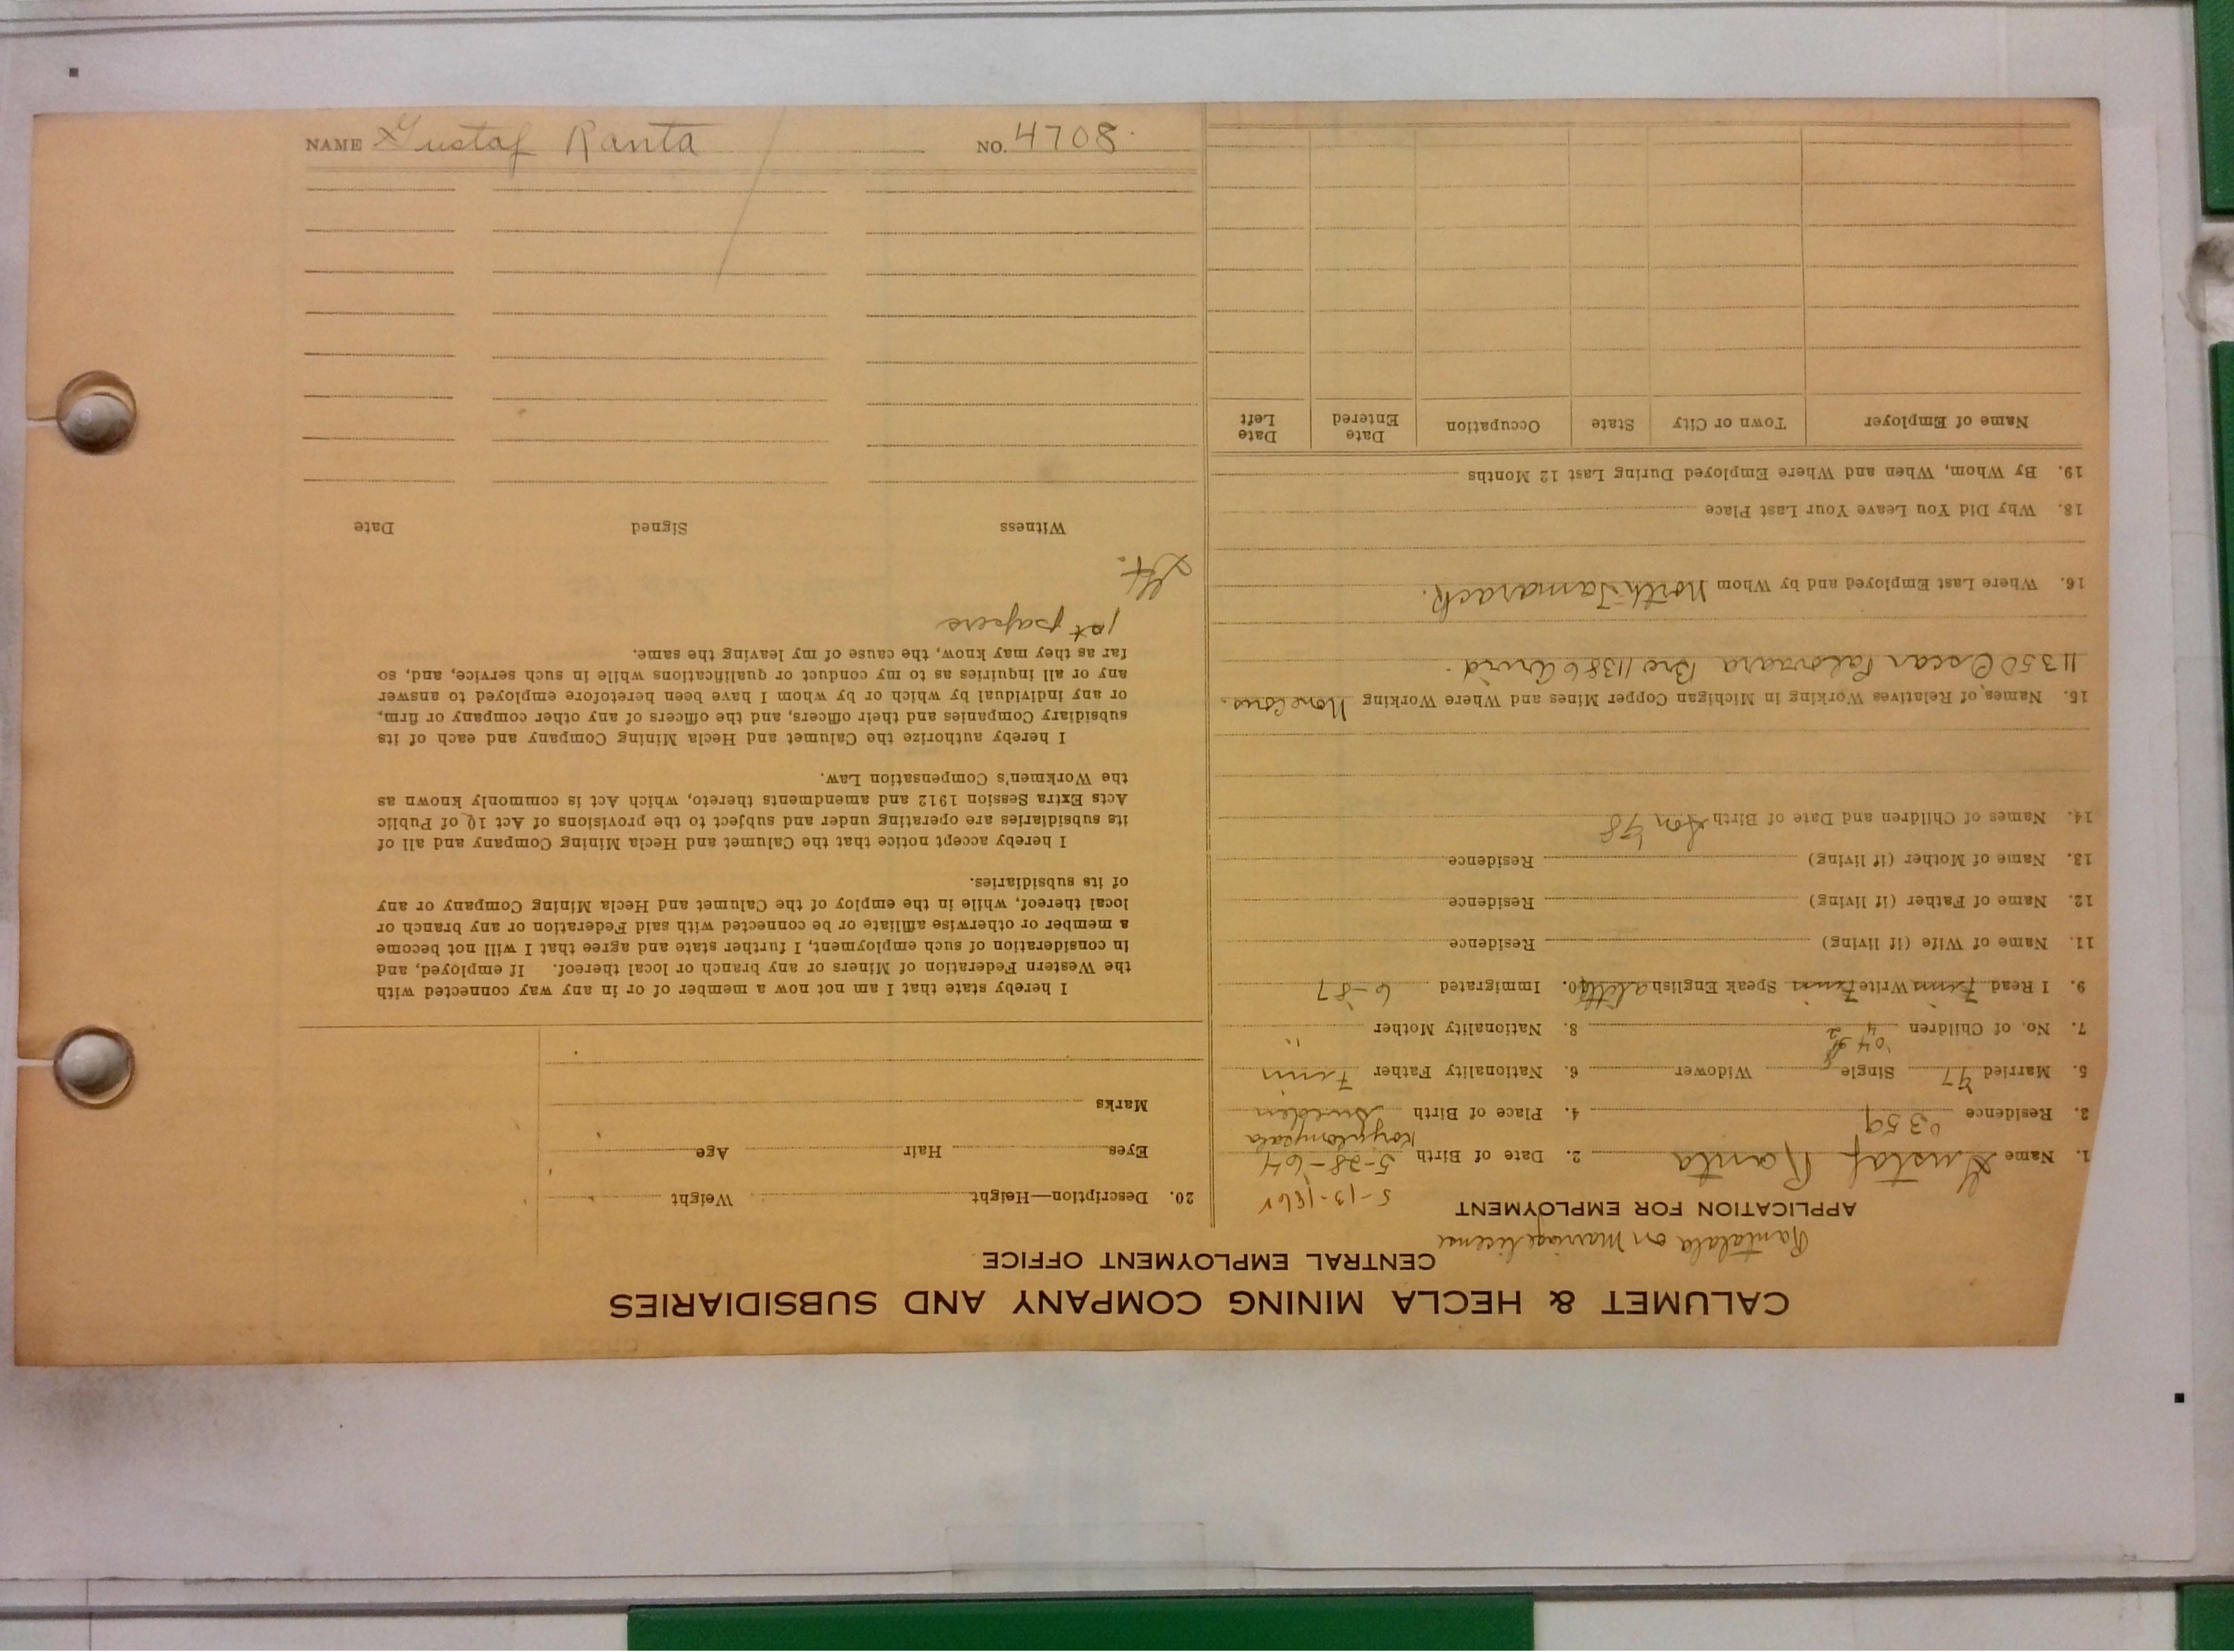 NAME Gustaf Ranta NO. 4708
CALUMET & HECLA MINING COMPANY AND SUBSIDIARIES
CENTRAL EMPLOYMENT OFFICE
Rantalala on Marriage license
APPLICATION FOR EMPLOYMENT
5-13-186
1. Name Gustaf Ranta 2. Date of Birth 5-28-64
3. Residence 0359 4. Place of Birth Sweden
5. Married 97 Single Widower 6. Nationality Father Finn
'04
7. No. of Children 4 2 8. Nationality Mother "
9. I Read Finn Write Finn Speak English a little 10. Immigrated 6-87
11. Name of Wife (if living) Residence
12. Name of Father (if living) Residence
13. Name of Mother (if living) Residence
14. Names of Children and Date of Birth Son '98
15. Names of Relatives Working in Michigan Copper Mines and Where Working None Cous.
11350 Oscar Palovaara Bro 11386 Arvid.
16. Where Last Employed and by Whom North Tamarack.
18. Why Did You Leave Your Last Place
19. By Whom, When and Where Employed During Last 12 Months
Name of Employer Town or City State Occupation Date Entered Date Left
20. Description—Height Weight
Eyes Hair Age
Marks
I hereby state that I am not now a member of or in any way connected with
the Western Federation of Miners or any branch or local thereof. If employed, and
in consideration of such employment, I further state and agree that I will not become
a member or otherwise affiliate or be connected with said Federation or any branch or
local thereof, while in the employ of the Calumet and Hecla Mining Company or any
of its subsidiaries.
I hereby accept notice that the Calumet and Hecla Mining Company and all of
its subsidiaries are operating under and subject to the provisions of Act 10 of Public
Acts Extra Session 1912 and amendments thereto, which Act is commonly known as
the Workmen's Compensation Law.
I hereby authorize the Calumet and Hecla Mining Company and each of its
subsidiary Companies and their officers, and the officers of any other company or firm,
or any individual by which or by whom I have been heretofore employed to answer
any or all inquiries as to my conduct or qualifications while in such service, and, so
far as they may know, the cause of my leaving the same.
1st papers
Witness Signed Date